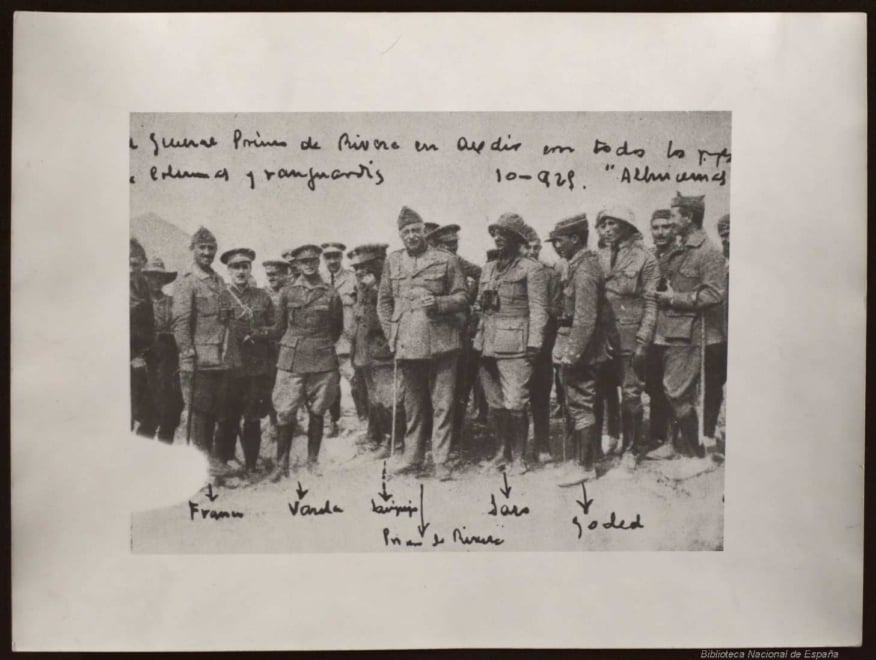 General Primo de Rivera en Axdir con todo los
y vanguardis 10-925. "Alhucemas
Franco Varela Saro
Primo de Rivera Goded
Biblioteca Nacional de España